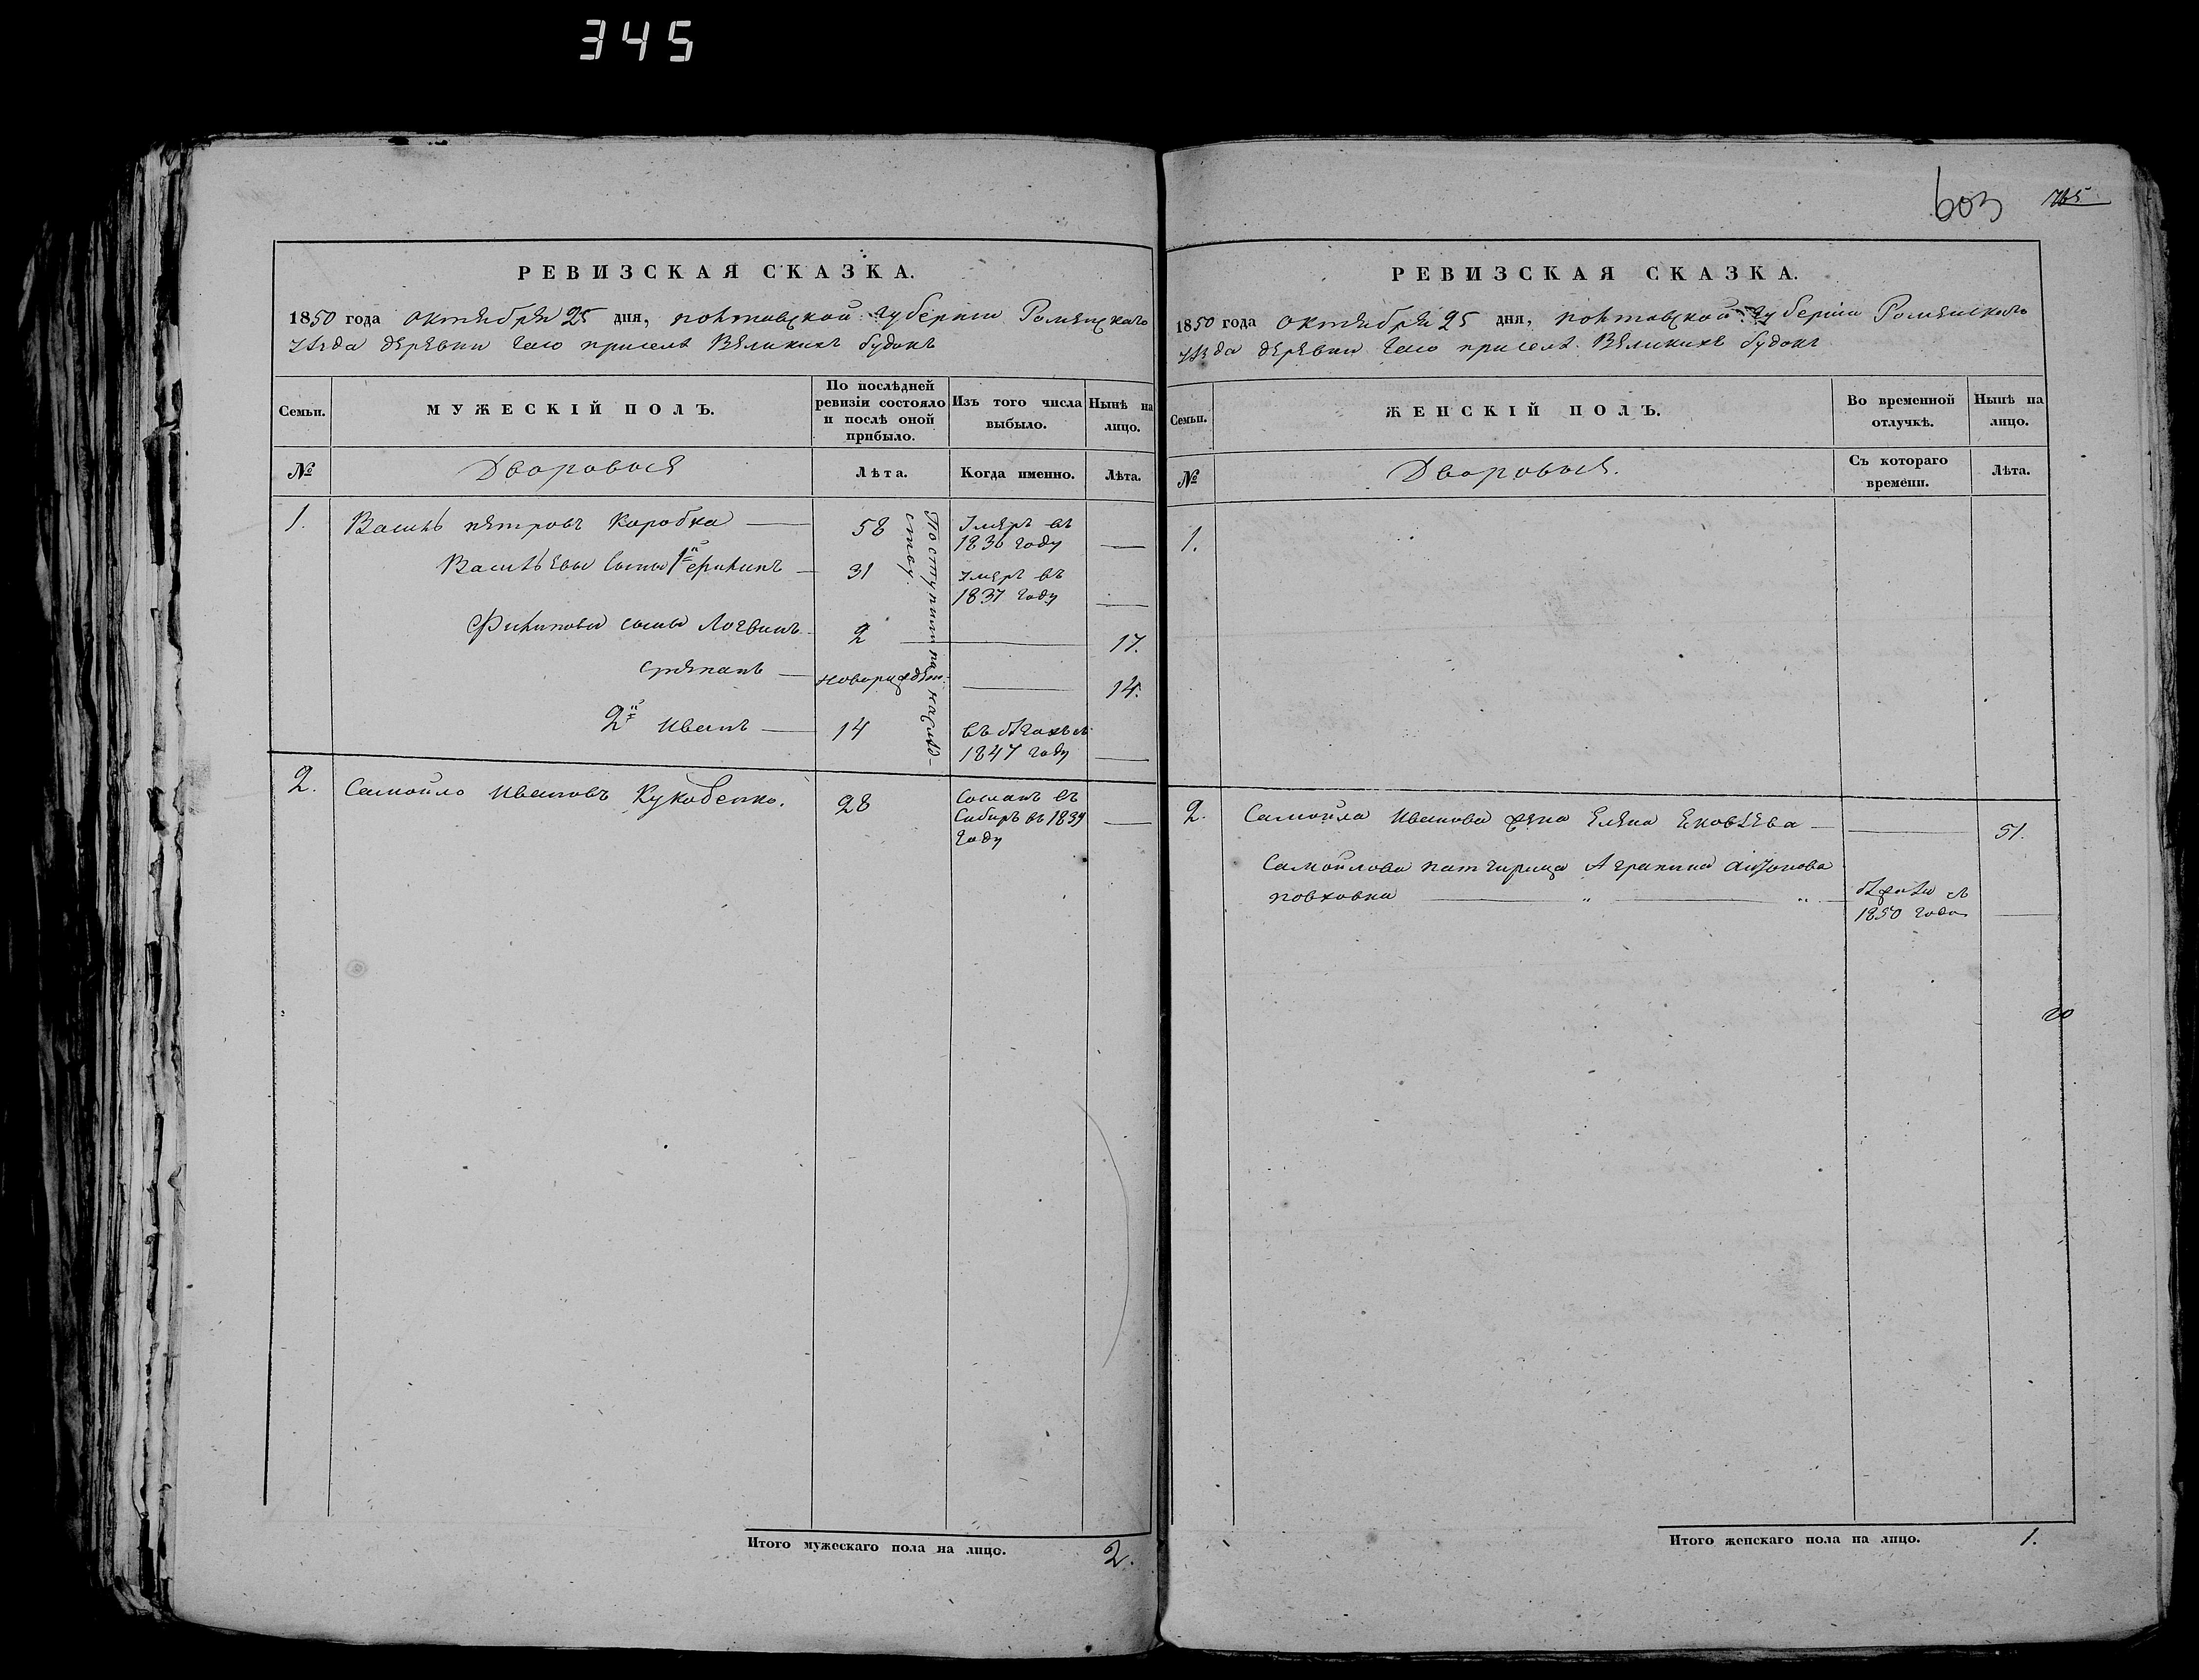 345
603
765
РЕВИЗСКАЯ СКАЗКА.
1850 года октября 25 дня, полтавской губернии Роменскаго
уезда деревни приселе Великихъ будокъ
Семьи.
МУЖЕСКІЙ ПОЛЪ.
По послѣдней ревизіи состояло и послѣ оной прибыло.
Изъ того числа выбыло.
Нынѣ на лицо.
№
Дворовыя
Лѣта.
Когда именно.
Лѣта.
1.
Василь петровъ Коробка
58
Умеръ въ
1836 году
Васильевы сыны 1й
31
умеръ въ
1837 году
Филиповы сыны Логвинъ
2
17.
степанъ
новорожден.
14.
2й Иванъ
14
въ бегахъ съ
1847 году
Поступили по наслед-
ству.
2.
Самойло Ивановъ Кукобенко.
28
Сосланъ въ
Сибирь въ 1839
году
Итого мужескаго пола на лицо.
2.
РЕВИЗСКАЯ СКАЗКА.
1850 года октября 25 дня, полтавской губерніи Роменскаго
уезда деревни приселе Великихъ будокъ
Семьи.
ЖЕНСКІЙ ПОЛЪ.
Во временной отлучкѣ.
Нынѣ на лицо.
№
Дворовыя.
Съ котораго времени.
Лѣта.
1.
2.
Самойла Иванова жена Елена Яковлева
51.
Самойлова патчирица Аграпина
повховна
1850 года
Итого женскаго пола на лицо.
1.